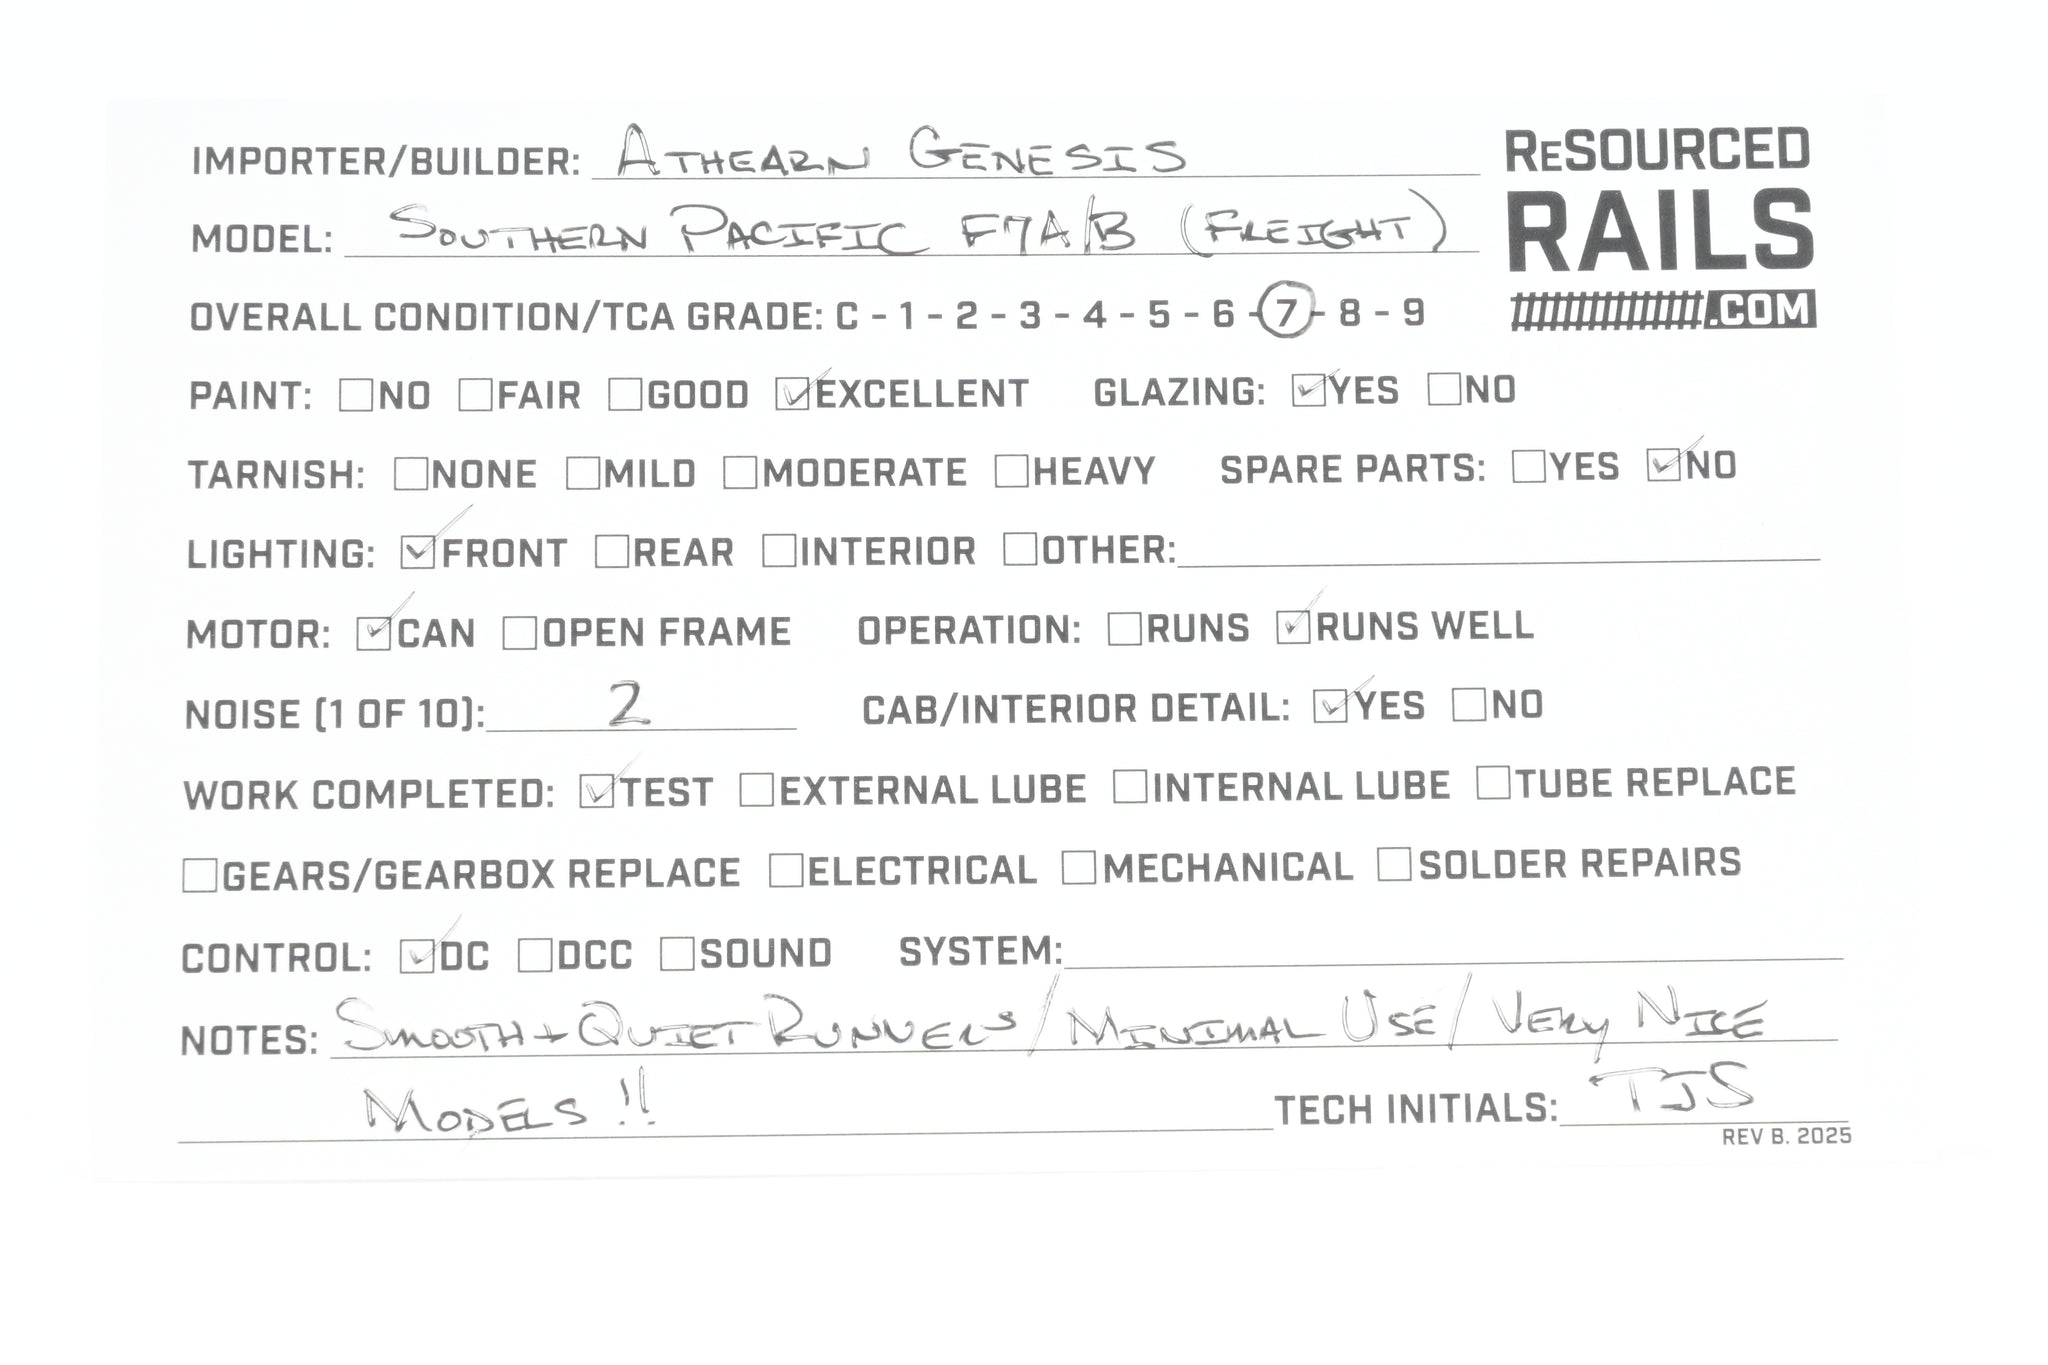 IMPORTER/BUILDER: ATHEARN GENESIS
ReSOURCED
RAILS
.COM
MODEL: SOUTHERN PACIFIC F7A/B (FREIGHT)
OVERALL CONDITION/TCA GRADE: C - 1 - 2 - 3 - 4 - 5 - 6 - 7 - 8 - 9
PAINT: ☐NO ☐FAIR ☐GOOD ☑EXCELLENT GLAZING: ☑YES ☐NO
TARNISH: ☐NONE ☐MILD ☐MODERATE ☐HEAVY SPARE PARTS: ☐YES ☑NO
LIGHTING: ☑FRONT ☐REAR ☐INTERIOR ☐OTHER:
MOTOR: ☑CAN ☐OPEN FRAME OPERATION: ☐RUNS ☑RUNS WELL
NOISE (1 OF 10): 2 CAB/INTERIOR DETAIL: ☑YES ☐NO
WORK COMPLETED: ☑TEST ☐EXTERNAL LUBE ☐INTERNAL LUBE ☐TUBE REPLACE
☐GEARS/GEARBOX REPLACE ☐ELECTRICAL ☐MECHANICAL ☐SOLDER REPAIRS
CONTROL: ☑DC ☐DCC ☐SOUND SYSTEM:
NOTES: SMOOTH + QUIET RUNNERS / MINIMAL USE / VERY NICE
MODELS !! TECH INITIALS: TJS
REV B. 2025